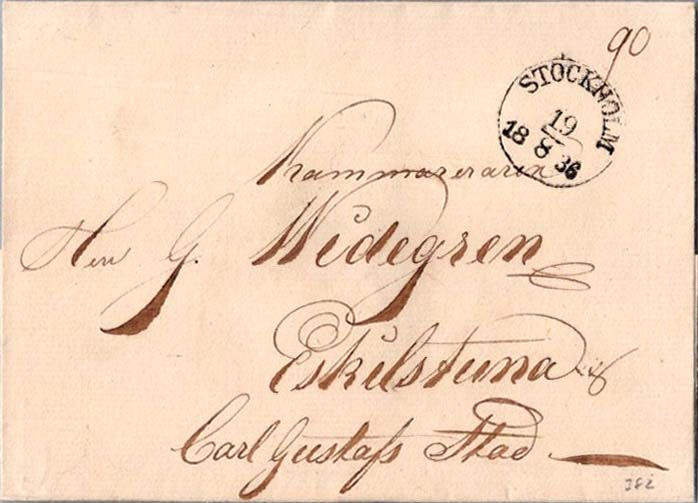 90
STOCKHOLM
19
8
18 36
Kammereraren
Herr G. Widegren
Eskilstuna
Carl Gustafs Stad
382